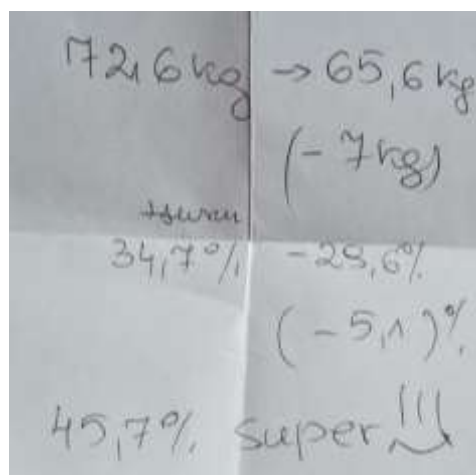 72,6 kg → 65,6 kg
(- 7kg)
34,7% - 29,6%
(- 5,1)%
45,7% super!!!